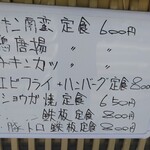 キン南蛮 定食 600円
鶏唐揚 〃 〃
チキンカツ 〃 〃
エビフライ+ハンバーグ定食 800
ショウガ焼 定食 650円
鉄板 定食 800円
豚トロ 鉄板定食 800円